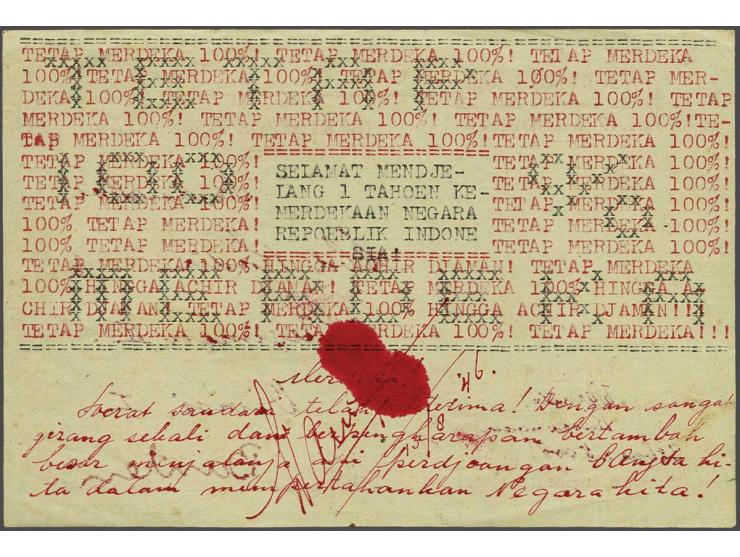 TETAP MERDEKA 100%! TETAP MERDEKA 100%! TETAP MERDEKA
100%! TETAP MERDEKA 100%! TETAP MERDEKA 100%! TETAP MER-
DEKA 100%! TETAP MERDEKA 100%! TETAP MERDEKA 100%! TETAP
MERDEKA 100%! TETAP MERDEKA 100%! TETAP MERDEKA 100%!TE-
TAP MERDEKA 100%! TETAP MERDEKA 100%! TETAP MERDEKA 100%!
TETAP MERDEKA 100%!
TETAP MERDEKA 100%!
TETAP MERDEKA 100%!
100% TETAP MERDEKA!
100% TETAP MERDEKA!
SELAMAT MENDJE-
LANG 1 TAHOEN KE-
MERDEKAAN NEGARA
REPOEBLIK INDONE
SIA!
TETAP MERDEKA
100%! TETAP
MERDEKA 100%!
TETAP MERDEKA
100%!
TETAP MERDEKA 100% HINGGA ACHIR DJAMAN! TETAP MERDEKA
100% HINGGA ACHIR DJAMAN! TETAP MERDEKA 100% HINGGA A-
CHIR DJAMAN! TETAP MERDEKA 100% HINGGA ACHIR DJAMAN!!!
TETAP MERDEKA 100%! TETAP MERDEKA 100%! TETAP MERDEKA!!!
Merdeka
Soerat saudara telah terima! Dengan sangat
girang sekali dan berpengharapan bertambah
besar menjalanja api perdjoangan bangsa ki-
ta dalam mempertahankan Negara kita!